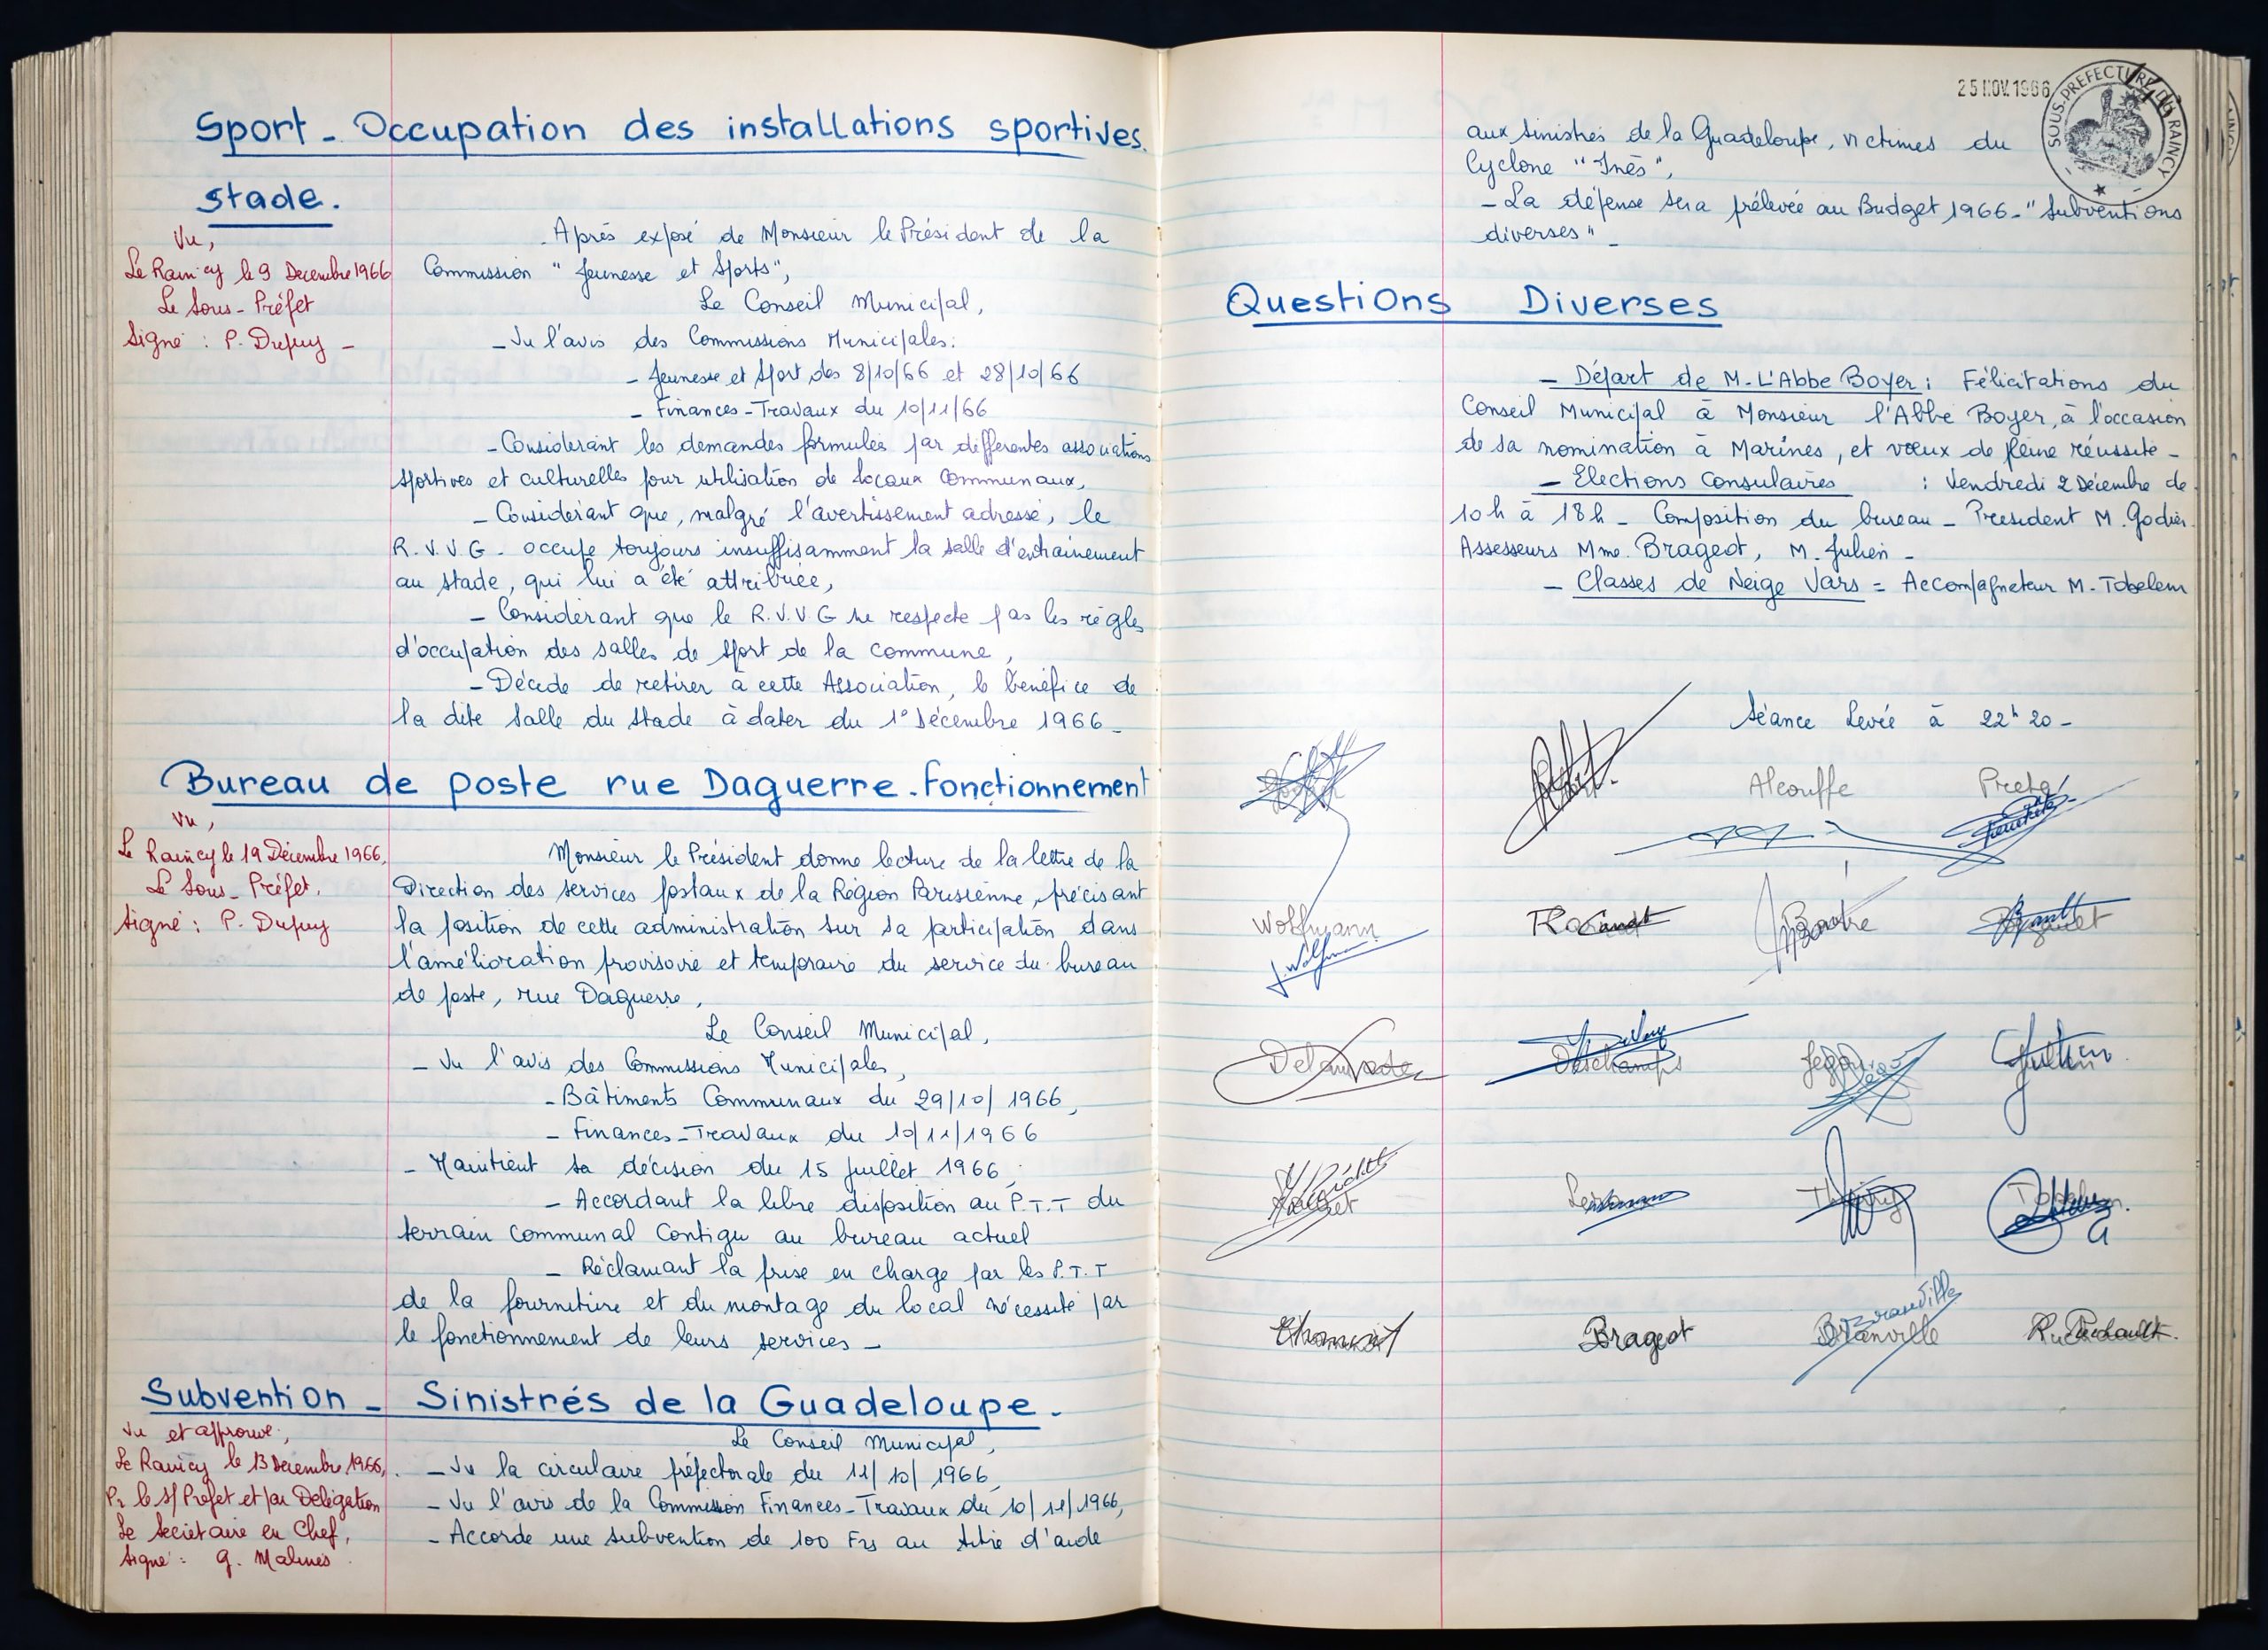 Sport - Occupation des installations sportives.
stade.
Vu,
Le Raincy le 9 Decembre 1966
Le Sous-Préfet
Signé : P. Dupuy -
Après exposé de Monsieur le Président de la
Commission "Jeunesse et Sports",
Le Conseil Municipal,
- Vu l'avis des Commissions Municipales:
- Jeunesse et Sport des 8/10/66 et 28/10/66
- Finances-Travaux du 10/11/66
- Considerant les demandes formulées par differentes associations
sportives et culturelles pour utilisation de locaux Communaux,
- Considérant que, malgré l'avertissement adressé, le
R.V.V.G - occupe toujours insuffisamment la salle d'entrainement
au stade, qui lui a été attribuée,
- Considérant que le R.V.V.G ne respecte pas les règles
d'occupation des salles de sport de la commune,
- Décide de retirer à cette Association, le bénéfice de
la dite salle du stade à dater du 1° Décembre 1966 -
Bureau de poste rue Daguerre - fonctionnement
Vu,
Le Raincy le 19 Décembre 1966,
Le Sous-Préfet,
Signé : P. Dupuy
Monsieur le Président donne lecture de la lettre de la
Direction des services postaux de la Région Parisienne, précisant
la position de cette administration sur sa participation dans
l'amélioration provisoire et temporaire du service du bureau
de poste, rue Daguerre,
Le Conseil Municipal,
- Vu l'avis des Commissions Municipales,
- Bâtiments Communaux du 29/10/1966,
- Finances-Travaux du 10/11/1966
- Maintient sa décision du 15 Juillet 1966,
- Accordant la libre disposition au P.T.T du
terrain communal Contigu au bureau actuel
- Réclamant la prise en charge par les P.T.T
de la fourniture et du montage du local nécessité par
le fonctionnement de leurs services -
Subvention - Sinistrés de la Guadeloupe -
Vu et approuvé,
Le Raincy le 13 Décembre 1966,
Pr le S/Prefet et par Délégation
Le Secrétaire en Chef,
Signé : G. Malines
Le Conseil Municipal,
- Vu la circulaire préfectorale du 11/10/1966,
- Vu l'avis de la Commission Finances-Travaux du 10/11/1966,
- Accorde une subvention de 100 Frs au titre d'aide
25 NOV. 1966
SOUS-PREFECTURE DU RAINCY
aux sinistrés de la Guadeloupe, victimes du
Cyclone "Inès",
- La dépense sera prélevée au Budget 1966 - "Subventions
diverses" -
Questions Diverses
- Départ de M. L'Abbe Boyer : Félicitations du
Conseil Municipal à Monsieur l'Abbé Boyer, à l'occasion
de sa nomination à Marines, et vœux de pleine réussite -
- Elections Consulaires : Vendredi 2 Décembre de
10h à 18h - Composition du bureau - President M. Godier
Assesseurs Mme. Brageot, M. Julien -
- Classes de Neige Vars = Accompagneteur M. Tobelem
Séance Levée à 22h20 -
Alcouffe
Wolfmann
J. Wolfmann
Deschamps
Julien
Thierry
Tobelem
Brageot
Branville
Branville